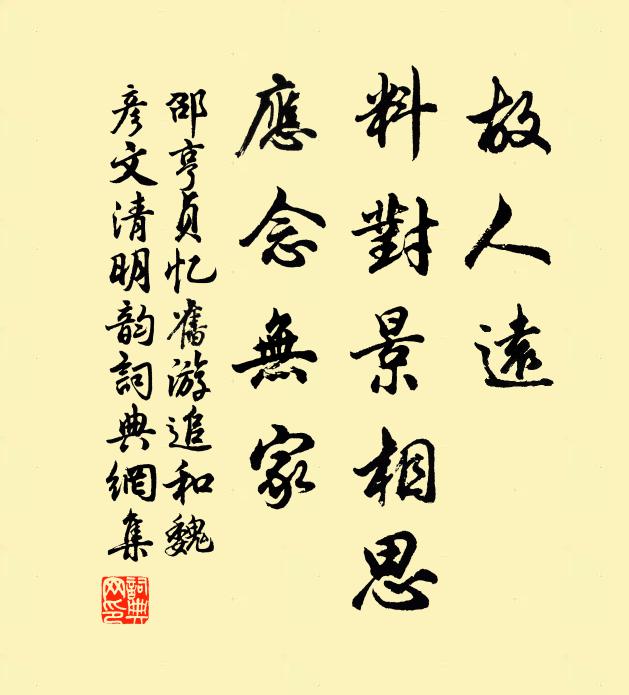 故人遠
料對景相思
應念無家
邵亨貞忆舊游追和魏
彦文清明韵詞典網集
詞典网印